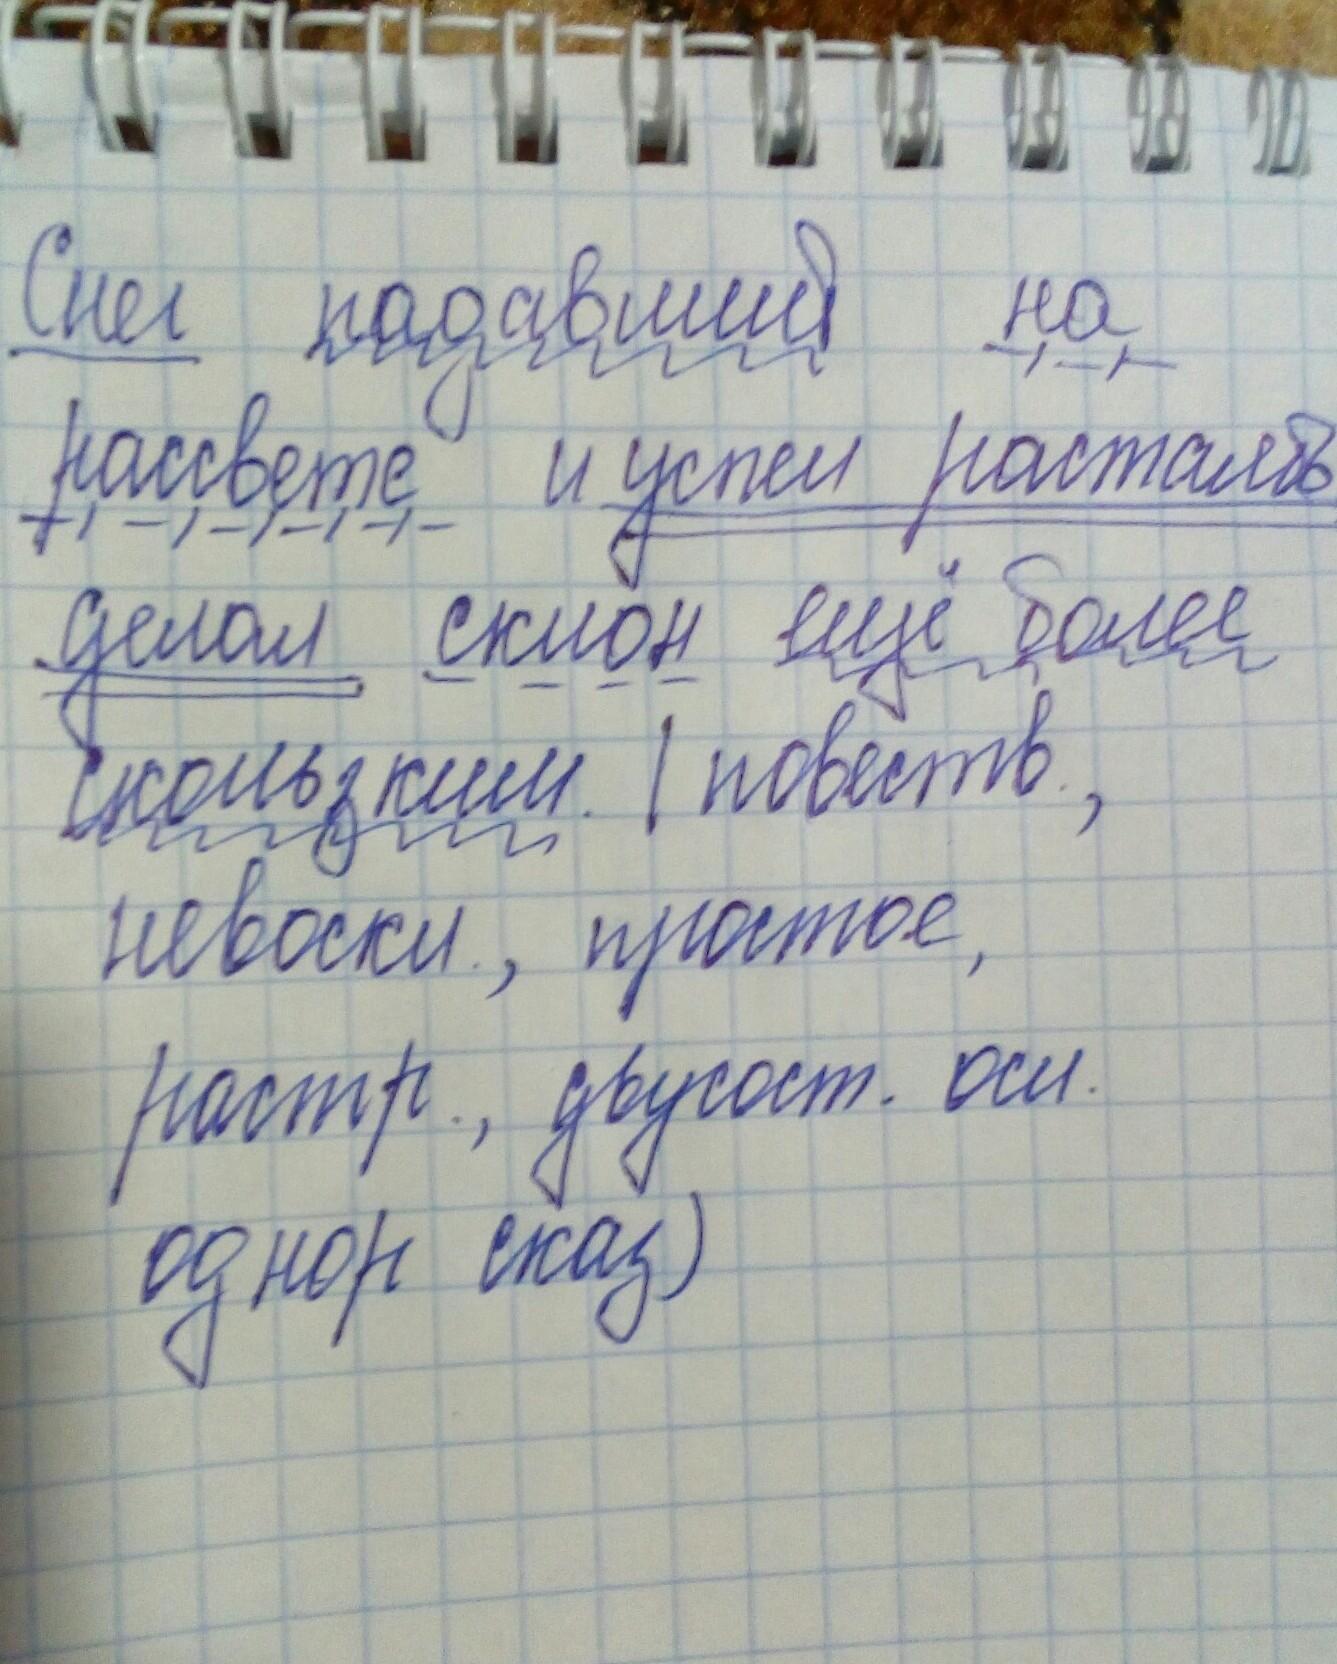 Снег падавший на
рассвете и успел растаять
делал склон ещё более
скользким. (повеств.,
невоскл., простое,
распр., двусост. осл.
однор сказ)